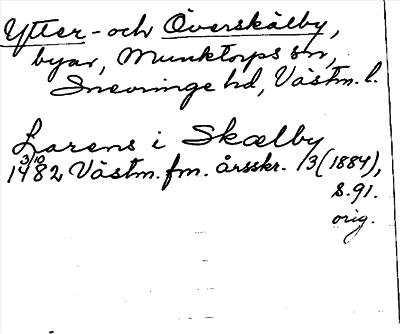 Ytter- och Överskälby,
byar, Munktorps sn,
Snevringe hd, Västm. l.
Larens i Skælby
3/10
1482 Västm. fm. årsskr. 3 (1884),
s. 91.
orig.